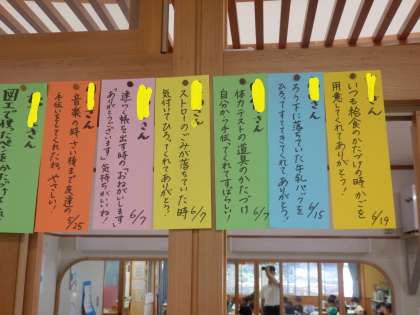 さん
いつも給食のかたづけの時かごを
用意してくれてありがとう!
6/19
さん
ろう下に落ちていた牛乳パックを
ひろってすててきてくれてありがとう。
6/15
さん
体力テストの道具のかたづけ
自分から手伝ってくれてすばらしい!
6/7
さん
ストローのごみが落ちていた時
気付いてひろってくれてありがとう!
6/7
さん
連らく帳を出す時の「おねがいします」
「ありがとうございます」気持ちがいいね!
6/7
さん
音楽の時さい後まで友達の
手伝いをしてくれたね やさしい!
5/25
さん
図工で使ったペンをかたづけて